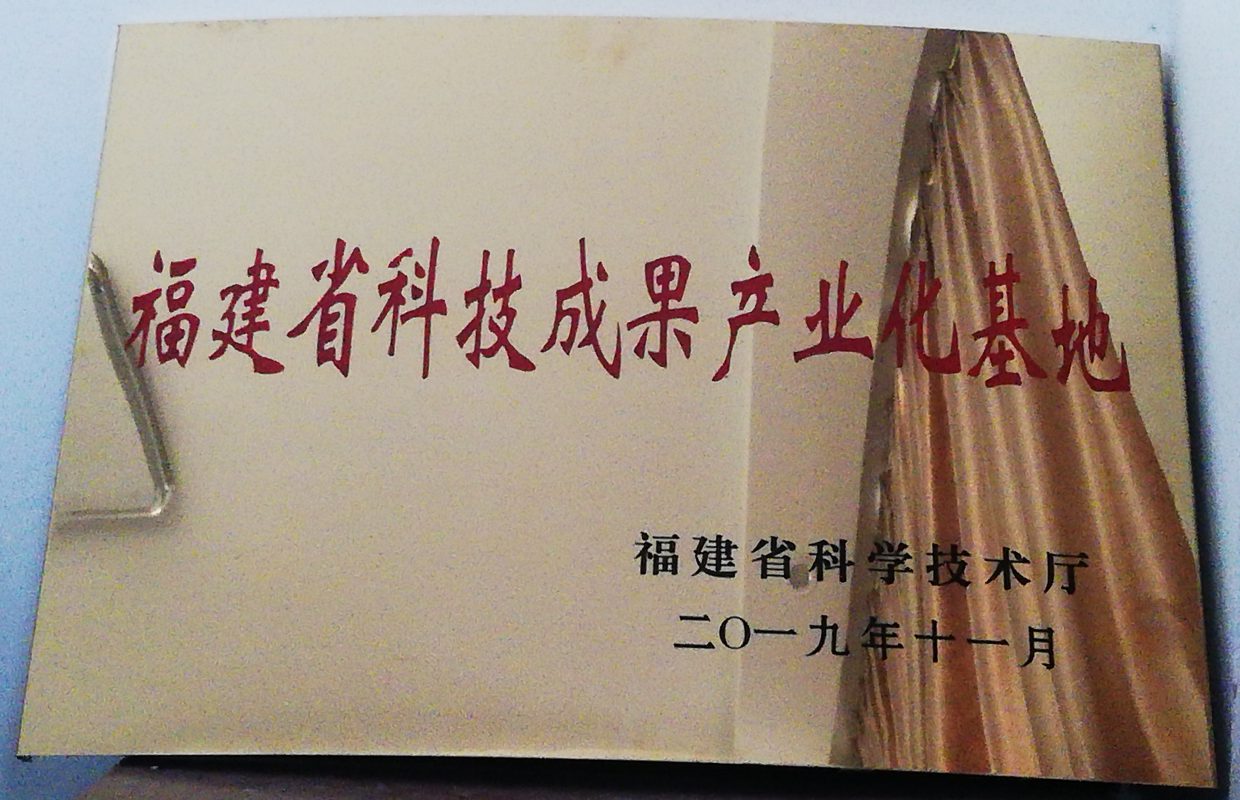 福建省科技成果产业化基地
福建省科学技术厅
二〇一九年十一月